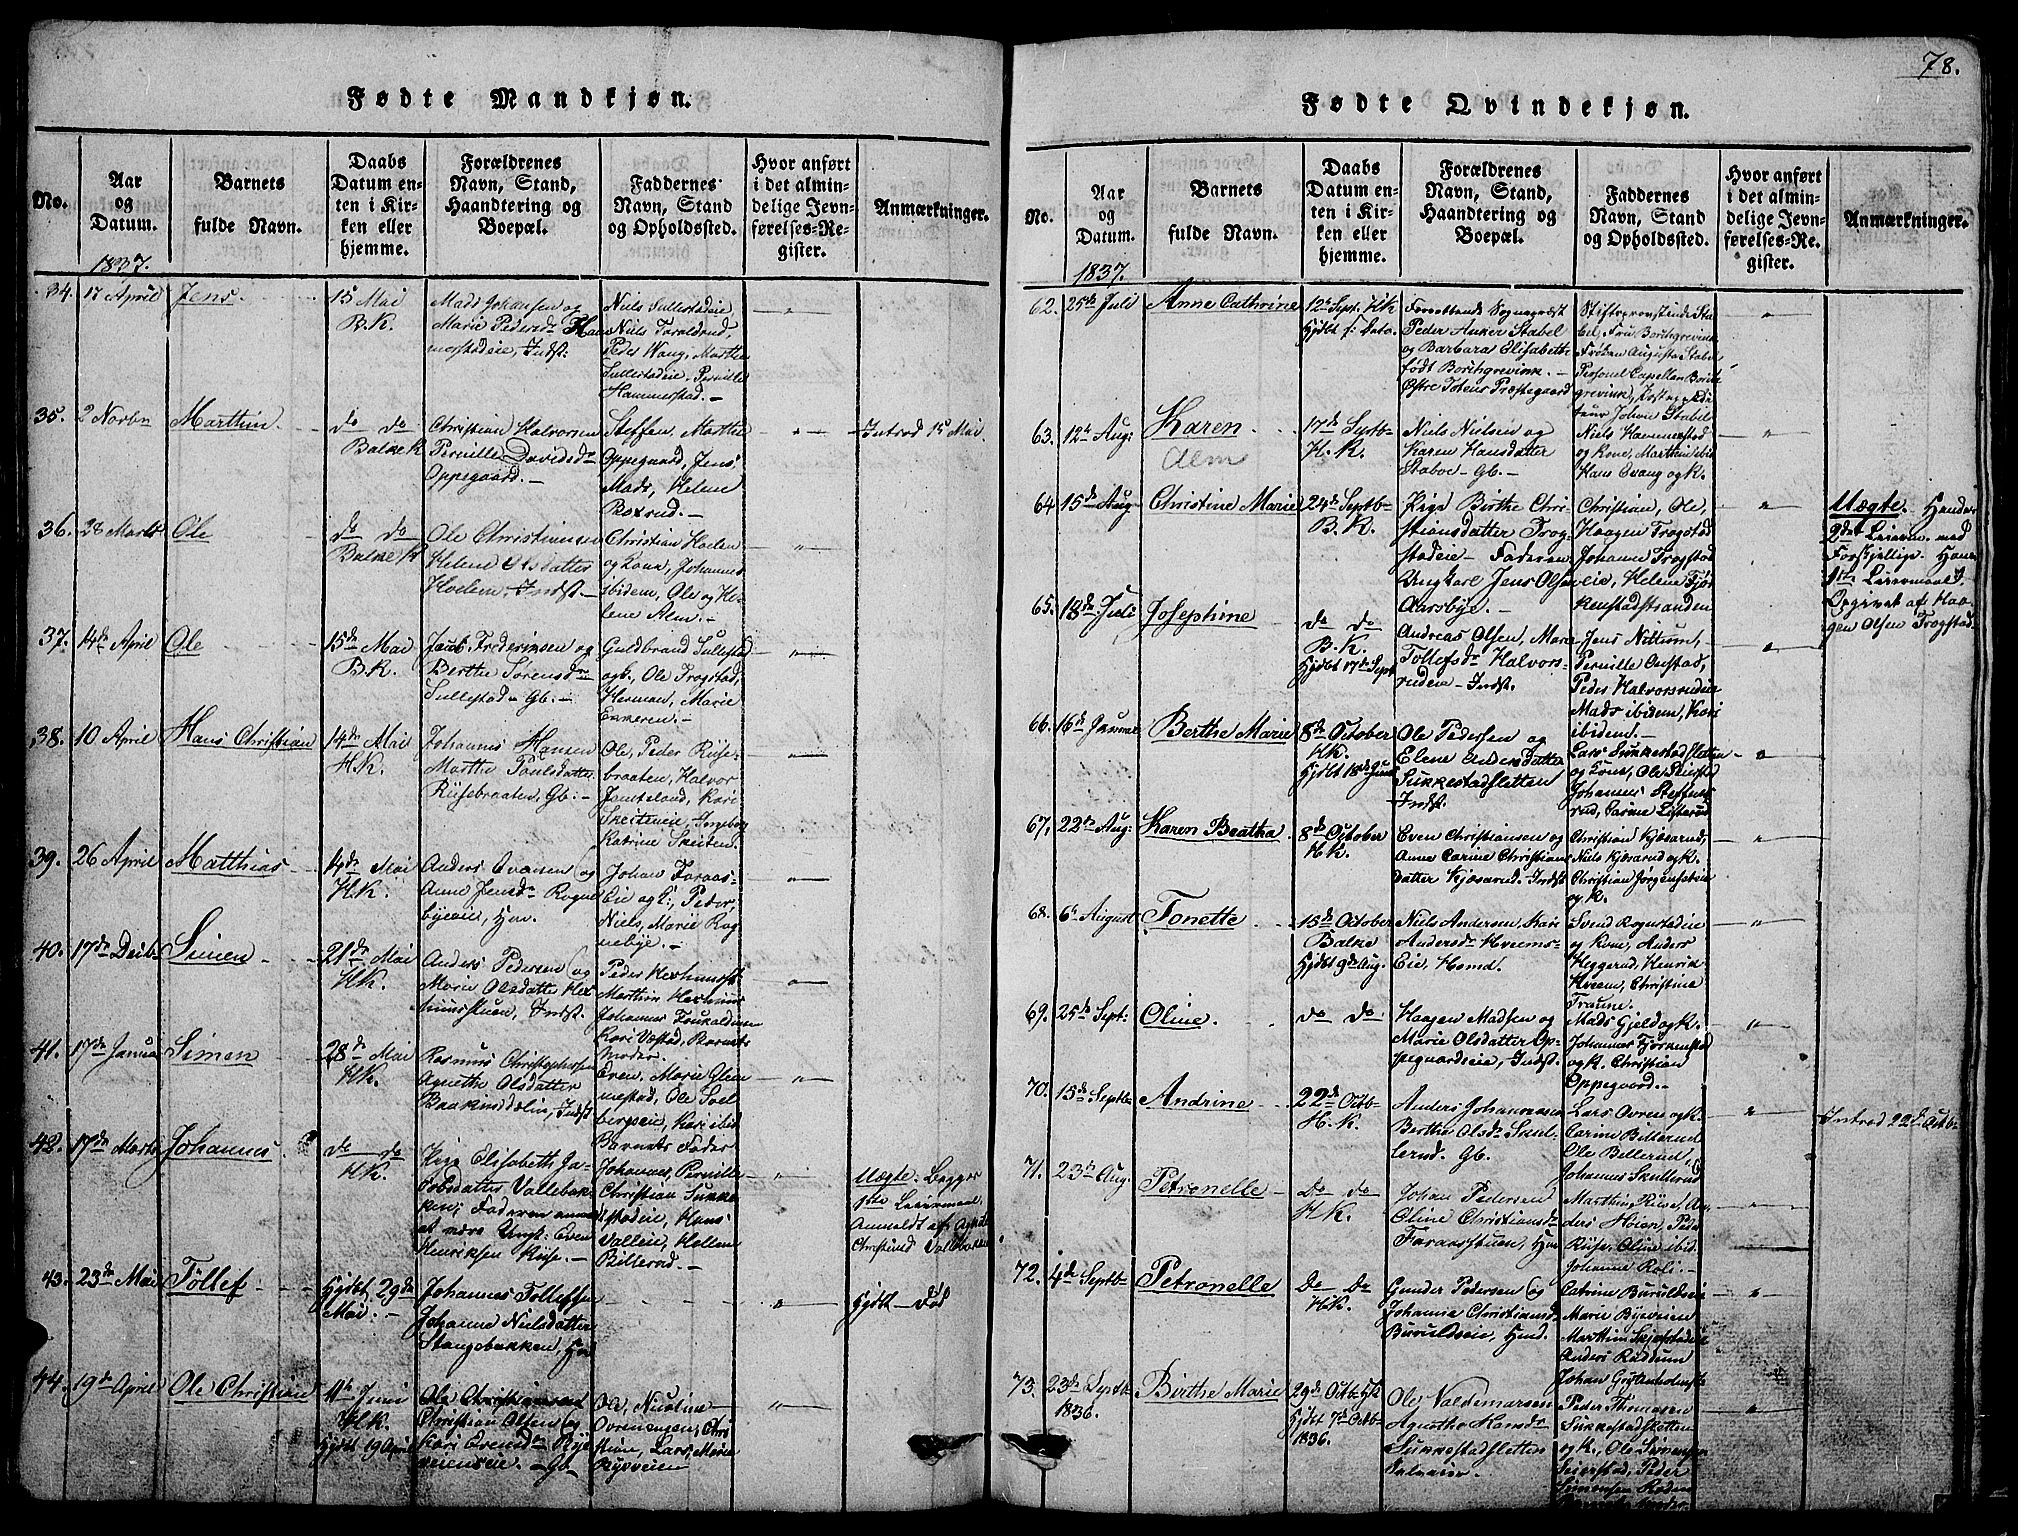 Fødte Mandkjøn.
No.
Aar
og
Datum.
Barnets
fulde Navn.
Daabs
Datum en-
ten i Kir-
ken eller
hjemme.
Forældrenes
Navn, Stand,
Haandtering og
Boepæl.
Faddernes
Navn, Stand
og Opholdssted.
Hvor anført
i det almin-
delige Jevn-
førelses-Re-
gister.
Anmærkninger.
1837.
34.
17 April
Jens
15 Mai
B.K.
Mads Johansen og
Marie Pedersdr Ham
merstadeie, Indst:
Niels Sullestadeie
Niels Taraldsrud
Peder Wang, Marthe
Sullestadeie, Pernille
Hammerstad. -
"
35.
2 Novbr
Marthin
do do
Balke K
Christian Halvorsen
Pernille Davidsdr
Oppegaard. -
Steffen, Marthe
Oppegaard, Jens
Mads, Helene
Boxrud. -
"
Introd 15 Mai.
36.
28 Marts
Ole
do do
Balke K
Ole Christiansen
Helene Olsdatter
Hoelem, Indst. -
Christian Hoelen
og Kone, Johannes
ibidem, Ole og He-
lene Alm. -
"
37.
14de April
Ole
15de Mai
B.K.
Jacob Frederiksen og
Berthe Sørensdr
Sullestad - Gb. -
Guldbrand Sullestad
og k., Ole Trogstad,
Herman, Marie
Eskeren. -
"
38.
10 April
Hans Christian
14de Mai
H.K.
Johannes Hansen
Marthe Poulsdatter
Riisebraaten, Gb: -
Ole, Peder Riise-
braaten, Halvor
Jemtelund, Kari
Skeiteneie, Ingeborg
Katrine Skeiten.
"
39.
26 April
Matthias
14de Mai
H.K.
Anders Evensen og
Anne Jensdr Rogne
byeeie, Hm.
Johan Faraas-
eie og k:, Peder
Niels, Marie Rog
nebye. -
"
40.
17de Decb
Simen
21de Mai
H.K.
Anders Pedersen og
Marie Olsdatter Hex
Peder
Marthin
Johannes
Kari
Moder.
"
41.
17de Janua
Simen
28de Mai
H.K.
Rasmus Christophersen
Agnethe Olsdatter
Indst
Even, Marie Glem
mestad, Ole Soel
bergseie, Kari ibid
Barnets Fader
"
42.
17de Marts
Johannes
do do
H.K.
Pige Elisabeth Ja-
cobsdatter Vallebak-
ken; Faderen anmeldt
at være Ungk: Even
Henriksen Riise. -
Johannes, Pernille
Christian Sukke
stadeie, Hans
Valleie, Hellene
Billerud. -
"
Uægte. Begges
1ste Leiermaal
Anmeldt af
Christlund Vallebakken
43.
23de Mai
Tollef
Hjdbt 29de
Mai. -
Johannes Tollefsen
Johanne Nielsdatter
Stangsbakken, Hm
"
Hjdt - Død
44.
19de April
Ole Christian
11te Juni
H.K.
Hjdbt 19 April
Christian Olsen og
Kari Evensdr Bye
veieneie. - Gb -
Ole, Nicoline
Ovrenengen, Chri
stine, Lars, Marie
Byeveien
"
78.
Fødte Qvindekjøn.
No.
Aar
og
Datum.
Barnets
fulde Navn.
Daabs
Datum en-
ten i Kir-
ken eller
hjemme.
Forældrenes
Navn, Stand,
Haandtering og
Boepæl.
Faddernes
Navn, Stand
og Opholdssted.
Hvor anført
i det almin-
delige Jevn-
førelses-Re-
gister.
Anmærkninger.
1837.
62.
25de Juli
Anne Cathrine
12te Sept. H.K
Hjdbt f: Dato.
Forrettende Sognepræst
Peder Anker Stabel
og Barbara Elisabeth
født Borchgrevink. -
Østre Totens Præstegaard
Stiftsprovstinde Sta-
bel, Fru Borchgrevink
Frøken Augusta Stabel
Personel Capellan Borch
grevink,
Johan Stabel
"
63.
12te Aug:
Karen
Alm
17de Septb
H.K.
Niels Nielsen og
Karen Hansdatter
Staboe - Gb. -
Niels Hammerstad
og Kone, Marthin ibid
Hans Evang og K.
"
64
15de Aug
Christine Marie
24de Septb
B.K.
Pige Birthe Chri-
stiansdatter Trog-
stadeie - Faderen
Ungkarl Jens Olsen
Aarsbye. -
Christian, Ole,
Haagen Trogstad
Johanne Trogstad
eie, Helene Fjør
kenstadstranden
"
Uægte. Hendes
2det Leierm. med
Forskjellige. Hans
1ste Leiermaal.
Opgivet af Haa-
gen Olsen Trogstad.
65.
18de Juli
Josephine
do do
B.K.
Hjdbt 17de Sept
Andreas Olsen, Mare
Tollefsdr Halvors-
rudeie - Indst.
Jens Nittum,
Pernille Onstad,
Peder Halvorsrudeie
Mads ibidem, Kari
ibidem. -
"
66.
16de Junii
Berthe Marie
8de October
H.K.
Hjdbt 18de Juni
Ole Pedersen og
Elene Andersdatter
Sukkestadsletten
Indst.
Lars Sukkestadsletten
og Kone, Ole
Johannes Steffens
rud, Carine Lisserud
"
67.
22de Aug:
Karen Beatha
8de October
H.K.
Even Christiansen og
Anne Carine Christians
datter Kjøsarud. Indst
Christian Kjøsarud,
Niels Kjøsarud og K.
Christian Jørgensteie
og k.
"
68.
6te August
Tonette
15de October
Balke
Hjdbt 9de Aug.
Niels Andersen, Kari
Andersdr Hveems-
eie, Hsmd.
Svend Rognstadeie
og Kone, Anders
Heggerud, Henrik
Hveem, Christine
Traune.
"
69.
25de Sept:
Oline
do do
Haagen Madsen og
Marie Olsdatter Op-
pegaardseie, Indst.
Mads Gjeld og K.
Johannes Fjørkenstad
og K. Christian
Oppegaard. -
"
70.
15de Septbr
Andrine
22de Octb
H.K.
Anders Johannesen
Berthe Olsdr Skul-
lerud. Gb.
Lars Ovren og K.
Carine Billerud
Ole Billerud
Johannes Skullerud
"
Introd 22de Octb
71.
23de Aug:
Petronelle
Do do
H.K.
Johan Pedersen
Oline Christiansdr
Faraasstuen, Hm
Marthin Riise, An-
ders Høien, Peder
Riise, Oline ibid
Johanne Roli. -
"
72.
4de Septb
Petronelle
Do Do
H.K.
Gunder Pedersen og
Johanne Christiansdr
Buruldseie, Hmd.
Catrine Buruldseie
Marie Byeveien
Marthin Skjelstadeie
Anders Ruddum
Johan
"
73.
23de Septb
1836.
Birthe Marie
29de Octb H.K
Hjdbt 7de Octb
1836.
Ole Valdemarsen
Agnethe Hansdr
Sukkestadsletten
Peder Thomasen
Sukkestadsletten
og K., Ole Simensen
Seierstad, Peder
Simensen
"